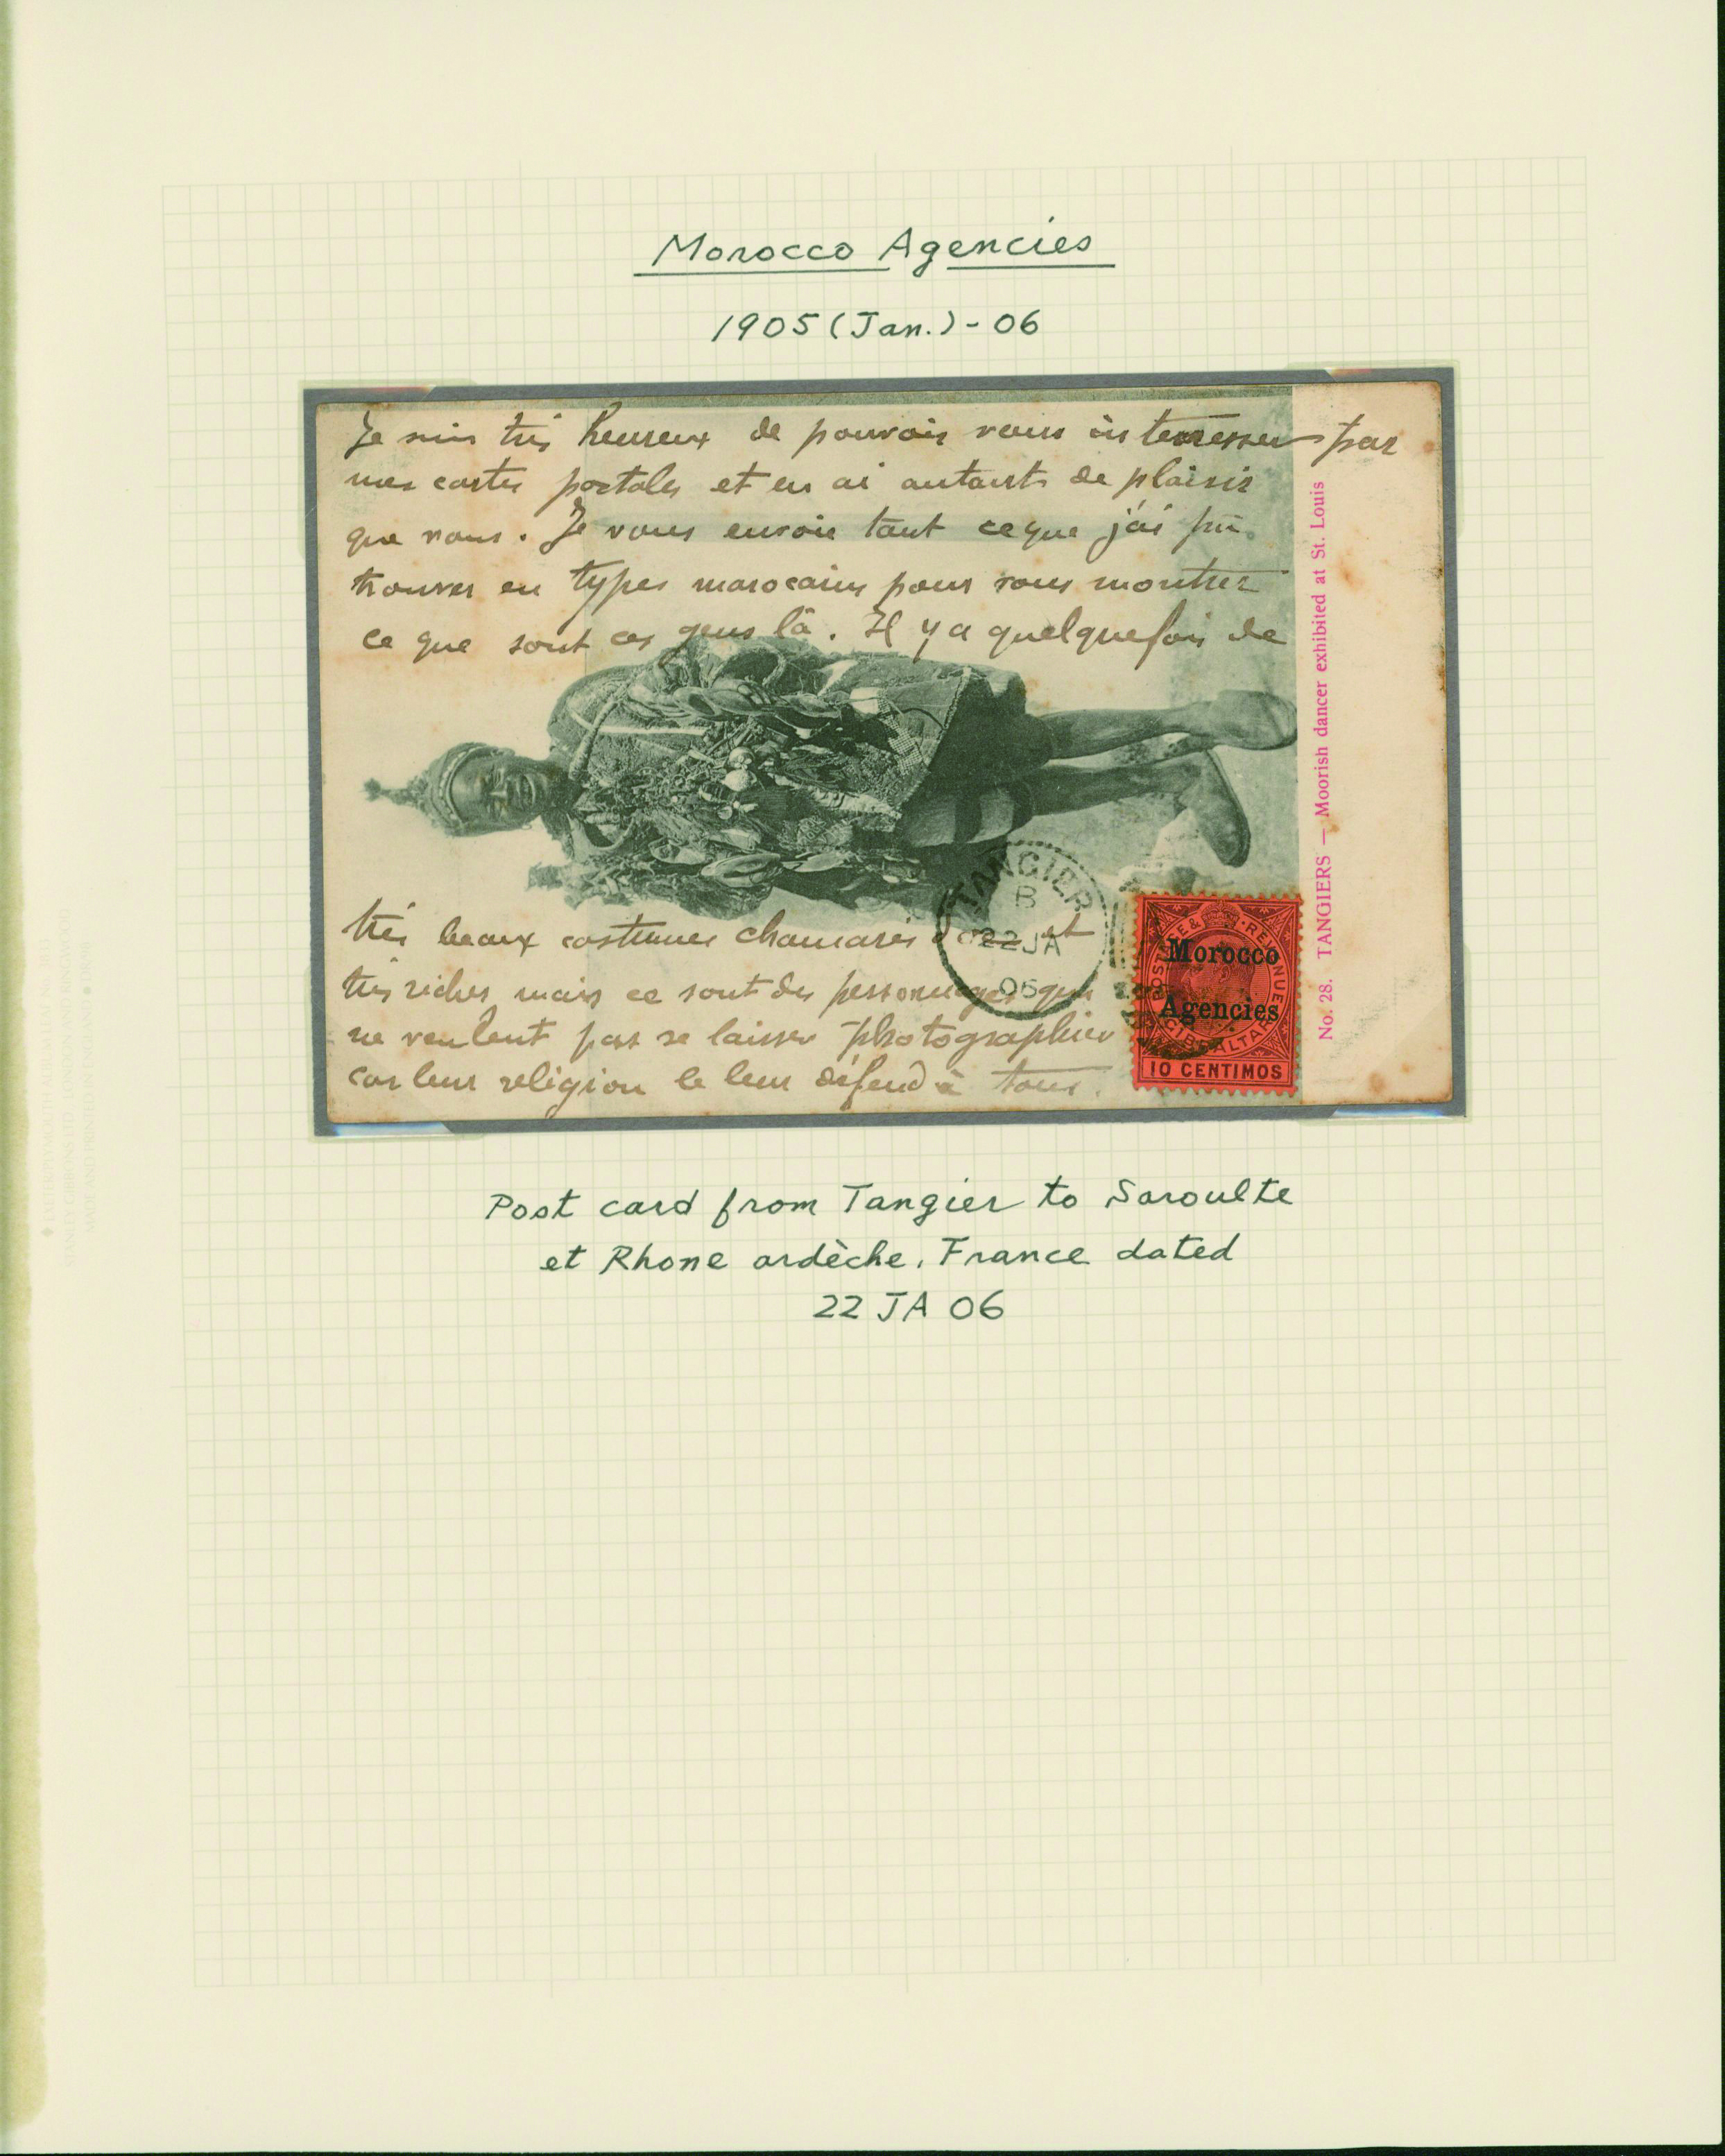 Morocco Agencies
1905 (Jan.) - 06
Je suis très heureux de pouvoir vous interresser par
mes cartes postales et en ai autants de plaisir
que vous. Je vous envoie tout ce que j'ai pu
trouver en types marocains pour vous montrer
ce que sont ces gens là. Il y a quelquefois de
très beaux costumes chamarés d'or et
très riches mais ce sont des personnages qui
ne veulent pas se laisser photographier
car leur religion le leur défend à tous.
No. 28. TANGIERS — Moorish dancer exhibited at St. Louis
TANGIER
B
22 JA
06
POSTAGE & REVENUE
Morocco
Agencies
GIBRALTAR
10 CENTIMOS
Post card from Tangier to Saroulte
et Rhone ardèche, France dated
22 JA 06